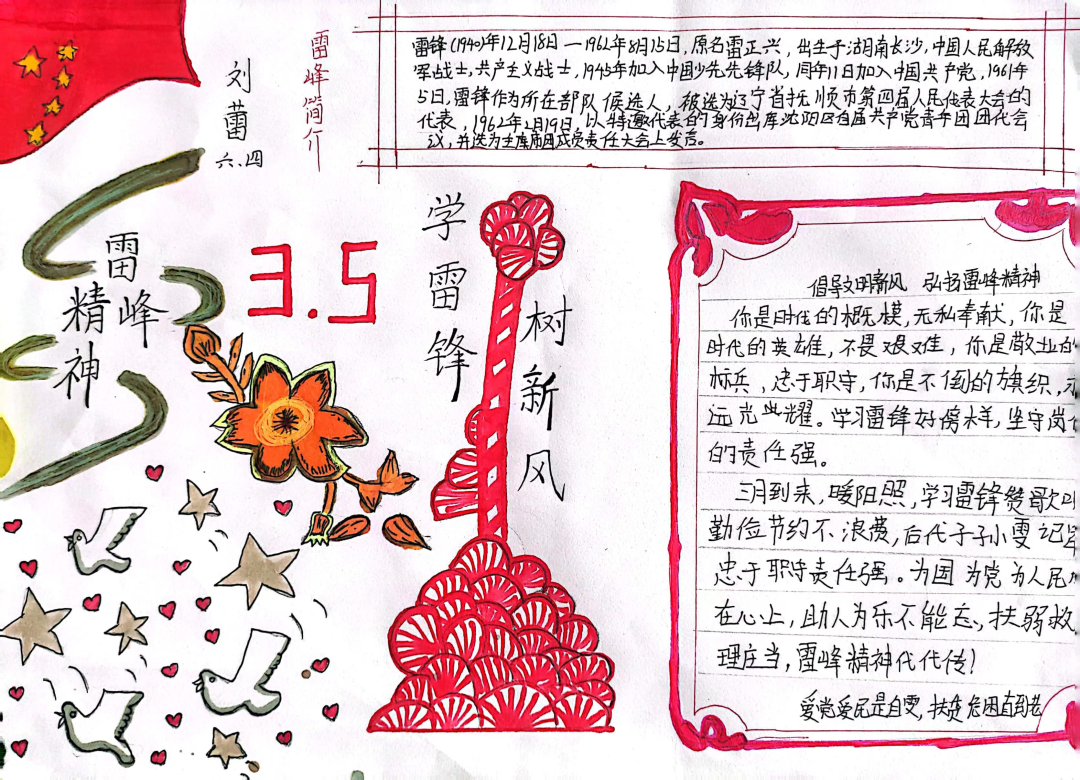 刘蕾
六.四
雷峰简介
雷锋(1940)年12月18日—1962年8月15日,原名雷正兴,出生于湖南长沙,中国人民解放
军战士,共产主义战士,1945年加入中国少先先锋队,同年11日加入中国共产党,1961年
5日,雷锋作为所在部队候选人,被选为辽宁省抚顺市第四届人民代表大会的
代表,1962年2月19日,以特邀代表的身份出席沈阳区首届共产党青年团团代会
议,并选为主席团成员责任大会上发言。
雷峰
精神
3.5
学雷锋
树新风
倡导文明新风 弘扬雷峰精神
你是时代的楷模,无私奉献,你是
时代的英雄,不畏艰难,你是敬业的
标兵、忠于职守,你是不倒的旗织,永
远光照耀。学习雷锋好榜样,坚守岗位
的责任强。
三月到来,暖阳照,学习雷锋赞歌
勤俭节约不浪费,后代子子孙要记
忠于职守责任强。为国为党为人民
在心上,助人为乐不能忘,扶弱救
理应当,雷峰精神代代传!
爱党爱民是自要,扶贫危困直到老